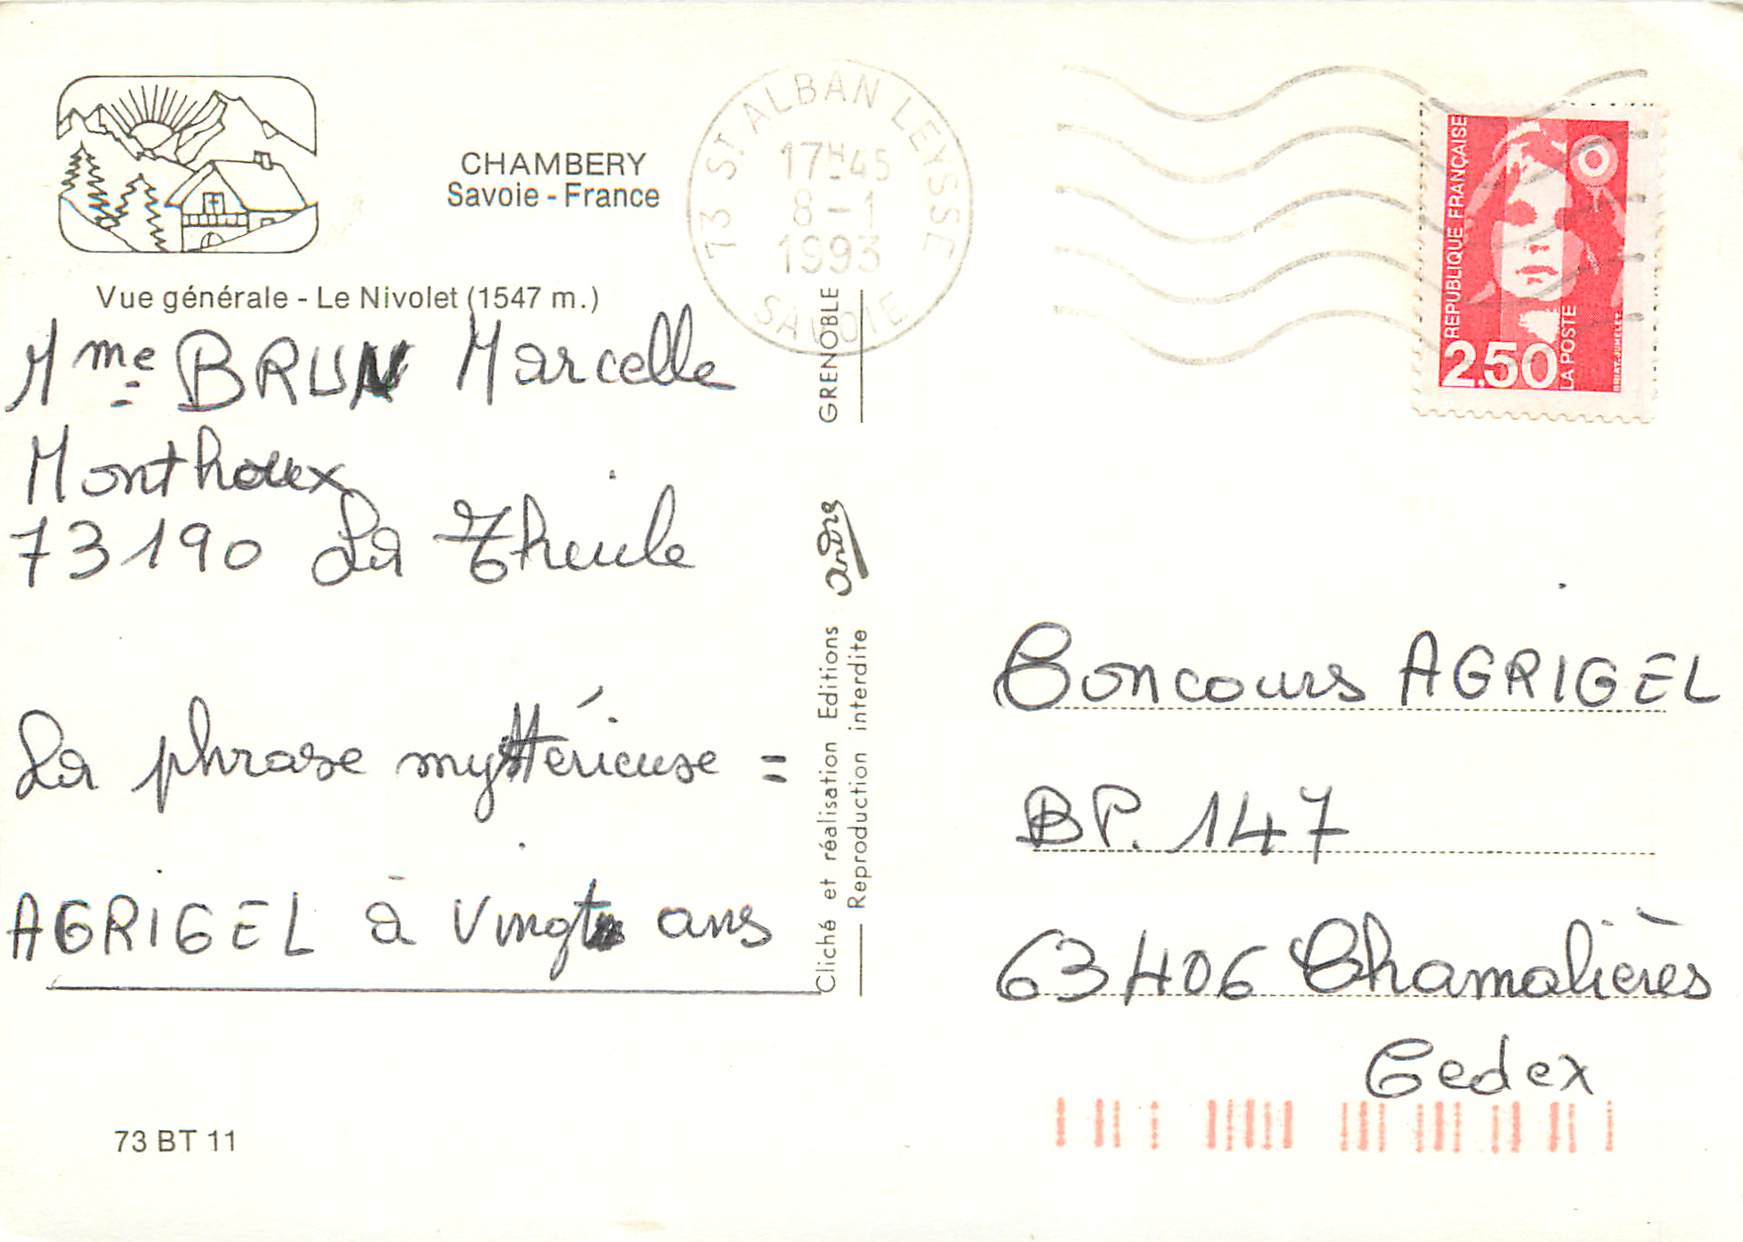 CHAMBERY
Savoie - France
Vue générale - Le Nivolet (1547 m.)
Mme BRUN Marcelle
Monthoux
73190 La Thuile
La phrase mystérieuse =
AGRIGEL à vingt ans
73 BT 11
Cliché et réalisation Editions andré GRENOBLE
Reproduction interdite
73 ST ALBAN LEYSSE
17H45
8-1
1993
SAVOIE
REPUBLIQUE FRANÇAISE
2.50
LA POSTE
BRIAT.JUMELET
Concours AGRIGEL
BP. 147
63406 Chamalières
Cedex